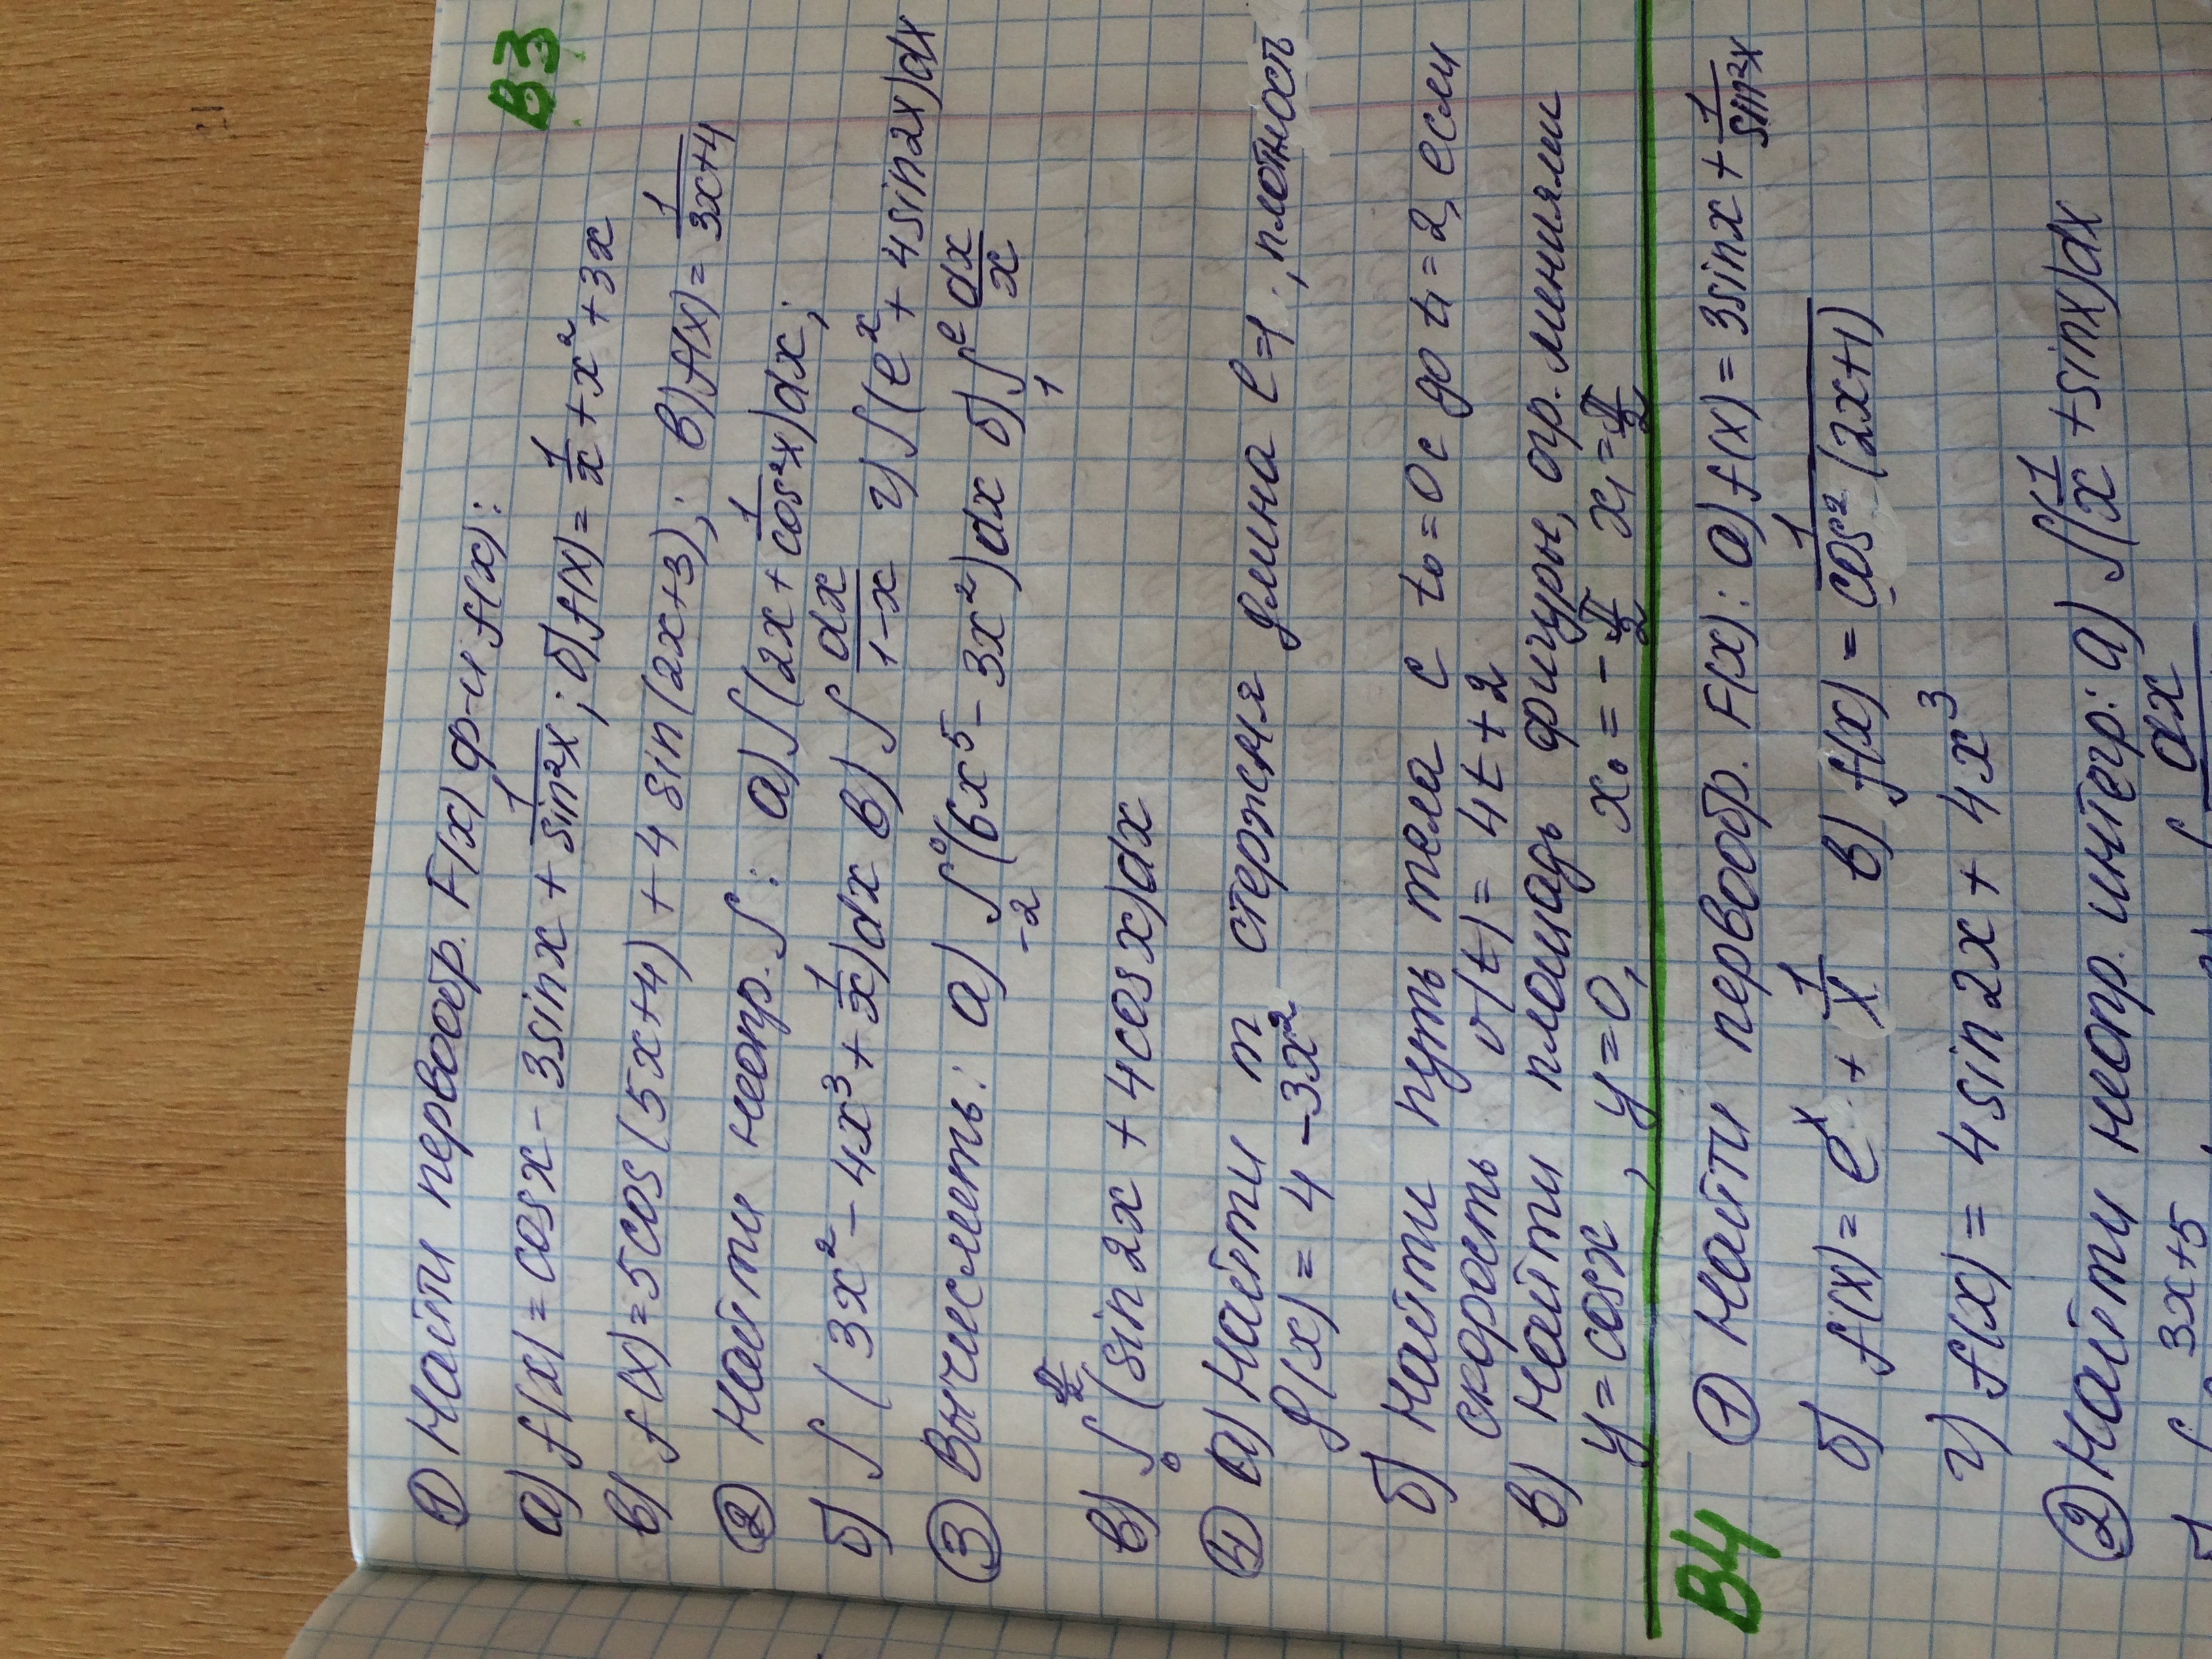 ① Найти первообр. F(x) ф-и f(x):
В3
а) f(x) = cosx - 3sinx + 1/sin²x ; б) f(x) = 1/x + x² + 3x
в) f(x) = 5cos(5x+4) + 4 sin(2x+3); в) f(x) = 1/(3x+4)
② Найти неопр. ∫ : а) ∫(2x + 1/cos²x)dx;
б) ∫ (3x² - 4x³ + 1/x)dx в) ∫ dx/(1-x) г) ∫(eˣ + 4sin2x)dx
③ Вычислить: а) ∫₋₂⁰(6x⁵ - 3x²)dx б) ∫₁ᵉ dx/x
в) ∫₀^(π/2) (sin2x + 4cosx)dx
④ а) Найти m стержня длина l=1, плотность
ρ(x) = 4 - 3x²
б) Найти путь тела с t₀=0с до t₁=2, если
скорость v(t) = 4t + 2
в) Найти площадь фигуры, огр. линиями
y = cosx , y = 0, x₀ = -π/2 x₁ = π/2
В4 ① Найти первообр. F(x): а) f(x) = 3sinx + 1/sin²x
б) f(x) = eˣ + 1/x в) f(x) = 1/cos²(2x+1)
г) f(x) = 4sin2x + 4x³
② Найти неопр. интегр: а) ∫(1/x + sinx)dx
3x+5 dx